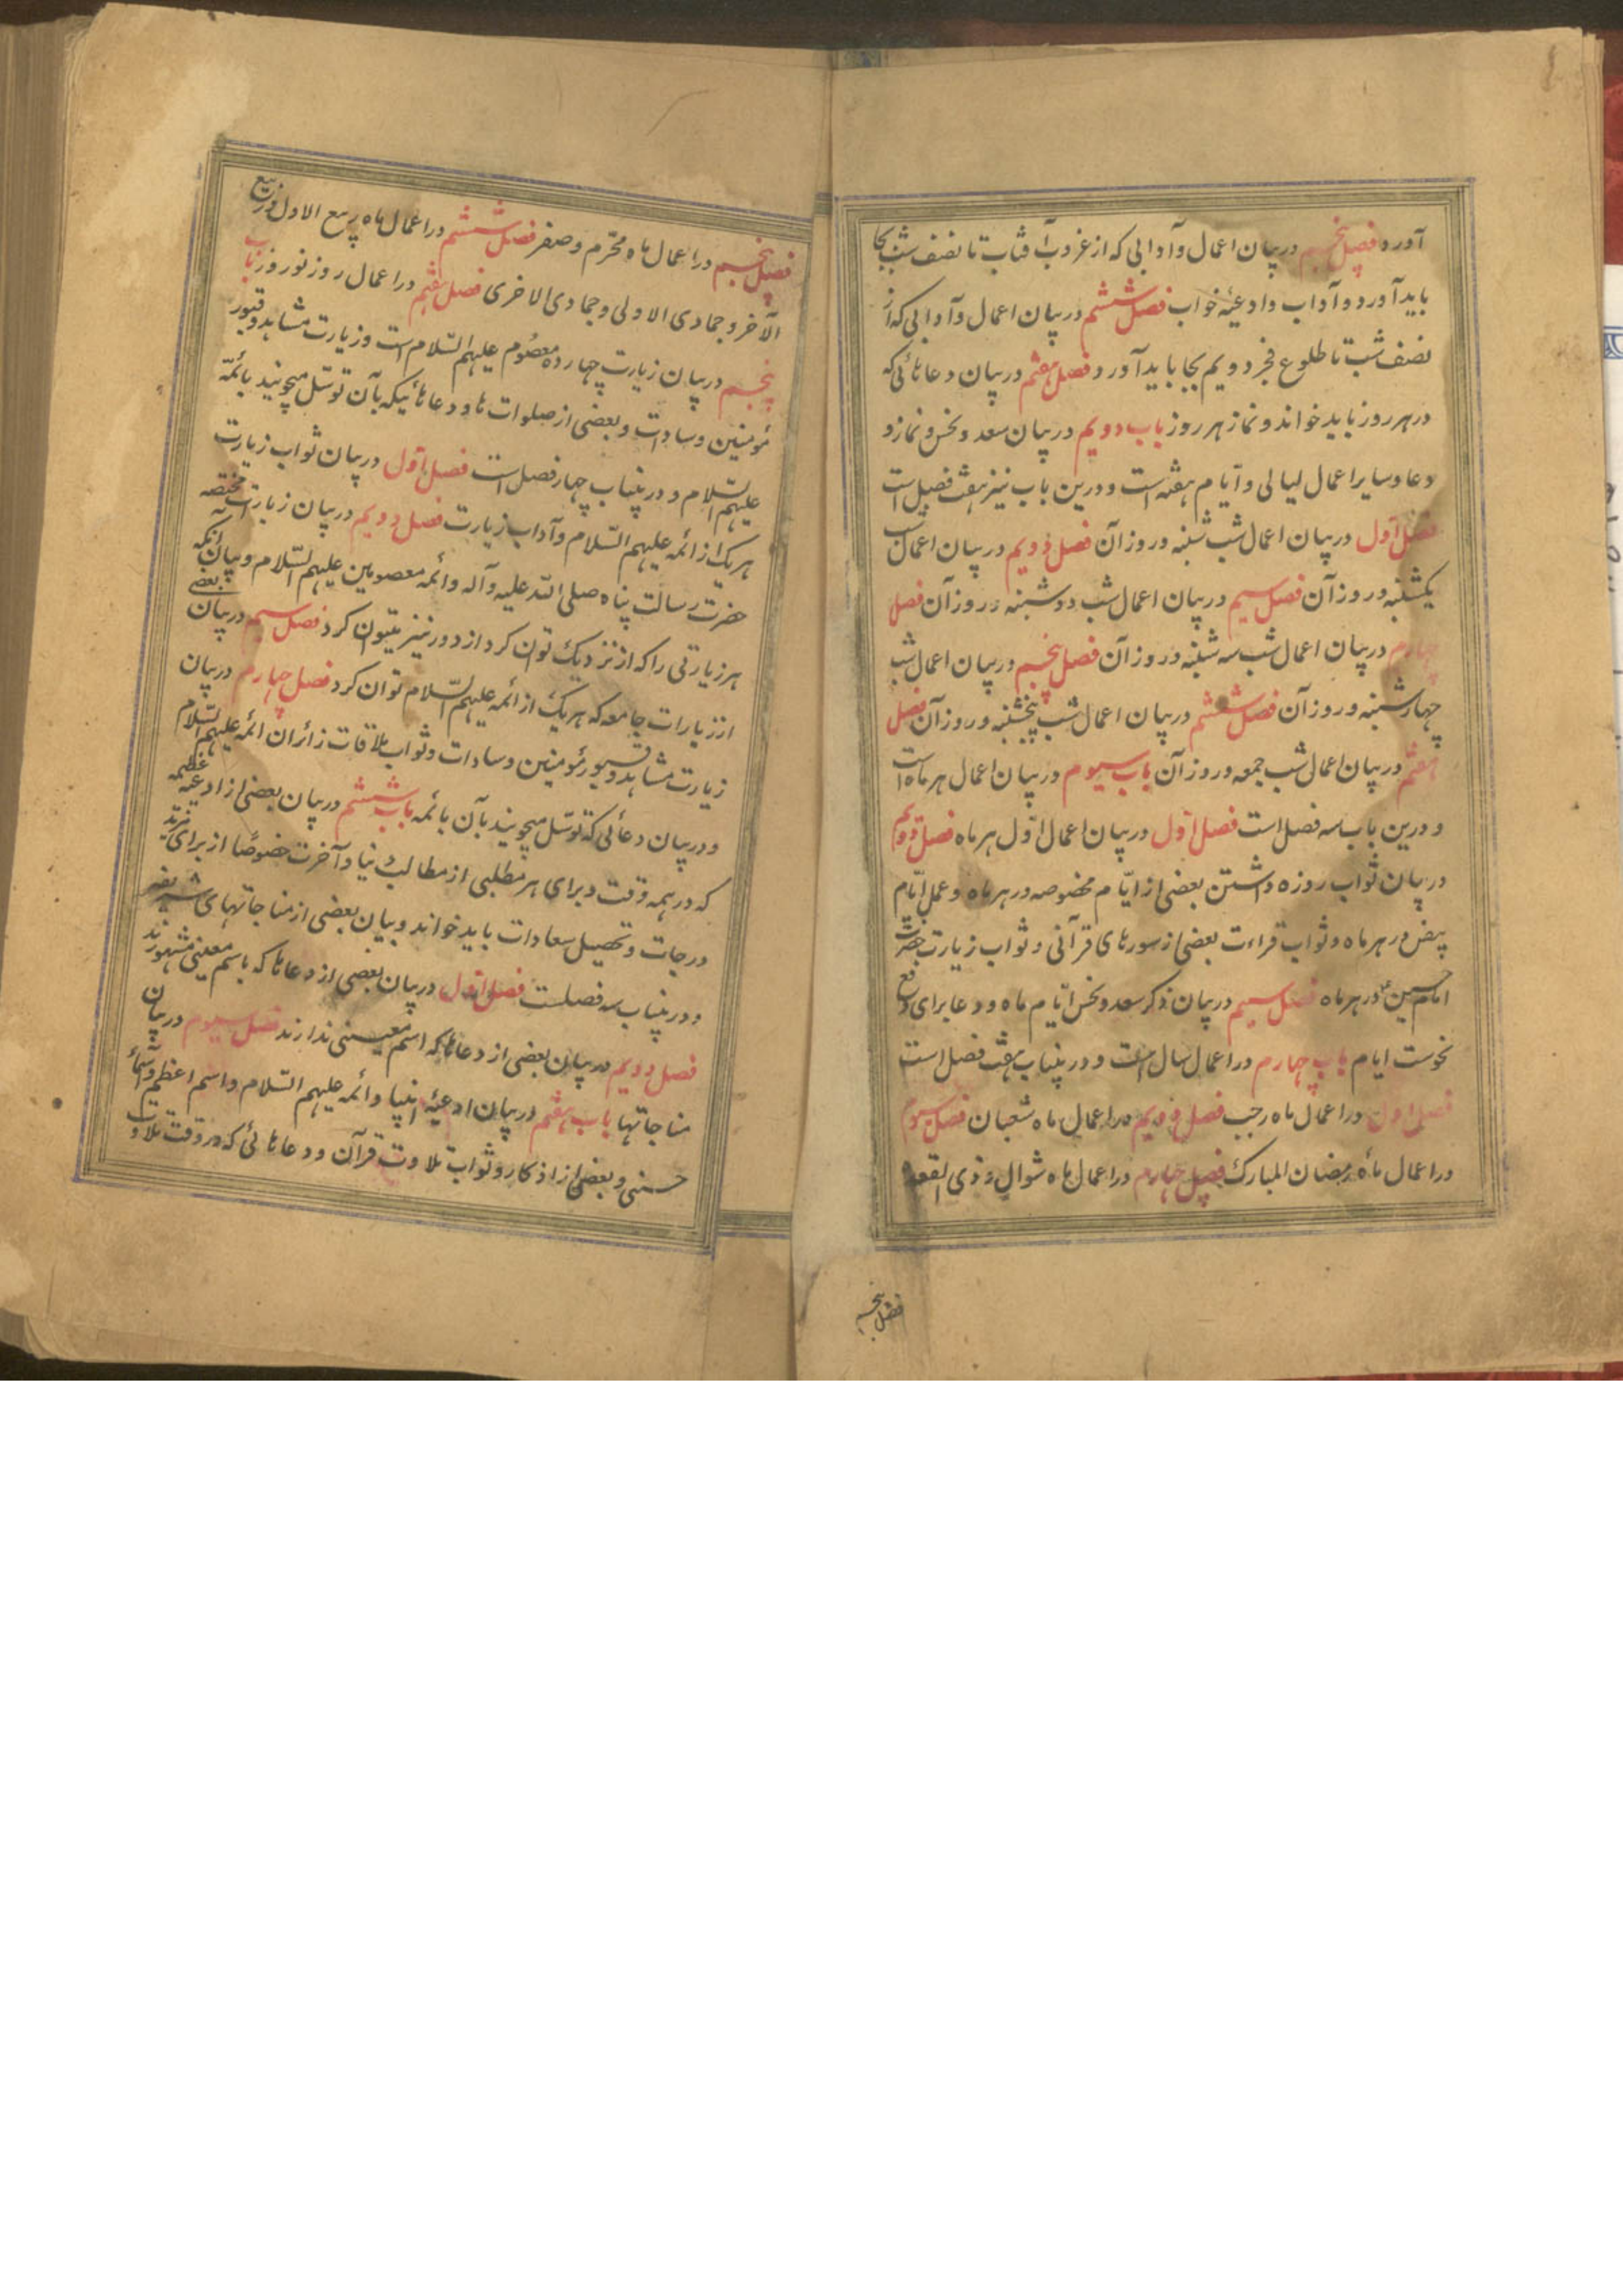 آورد فصل پنجم در بیان اعمال و آدابی که از غروب آفتاب تا نصف شب بجا
باید آورد و آداب و ادعیهٔ خواب فصل ششم در بیان اعمال و آدابی که از
نصف شب تا طلوع فجر دویم بجا باید آورد و فصل هفتم در بیان دعاهائی که
در هر روز باید خواند و نماز هر روز باب دویم در بیان سعد و نحس و نماز و
دعا و سایر اعمال لیالی و ایّام هفته است و درین باب نیز هفت فصل است
فصل اوّل در بیان اعمال شب شنبه و روز آن فصل دویم در بیان اعمال شب
یکشنبه و روز آن فصل سیم در بیان اعمال شب دوشنبه و روز آن فصل
چهارم در بیان اعمال شب سه شنبه و روز آن فصل پنجم در بیان اعمال شب
چهارشنبه و روز آن فصل ششم در بیان اعمال شب پنجشنبه و روز آن فصل
هفتم در بیان اعمال شب جمعه و روز آن باب سیوم در بیان اعمال هر ماه است
و درین باب سه فصل است فصل اوّل در بیان اعمال اوّل هر ماه فصل دویم
در بیان ثواب روزه داشتن بعضی از ایّام مخصوصه در هر ماه و عمل ایّام
بیض در هر ماه و ثواب قراءت بعضی از سورهای قرآنی و ثواب زیارت حضرت
امام حسین ع در هر ماه فصل سیم در بیان ذکر سعد و نحس ایّام ماه و دعا برای دفع
نحوست ایام باب چهارم در اعمال سال است و در ینباب هفت فصل است
فصل اول در اعمال ماه رجب فصل دویم در اعمال ماه شعبان فصل سیوم
در اعمال ماه رمضان المبارک فصل چهارم در اعمال ماه شوال و ذی القعده
فصل پنجم
فصل پنجم در اعمال ماه محرّم و صفر فصل ششم در اعمال ماه ربیع الاول و ربیع
الآخر و جمادی الاولی و جمادی الاخری فصل هفتم در اعمال روز نوروز باب
پنجم در بیان زیارت چهارده معصوم علیهم السّلام است و زیارت مشاهد و قبور
مؤمنین و سادات و بعضی از صلوات ها و دعاهائیکه بآن توسّل میجویند بائمّه
علیهم السّلام و در ینباب چهار فصل است فصل اوّل در بیان ثواب زیارت
هر یک از ائمه علیهم السّلام و آداب زیارت فصل دویم در بیان زیارات مختصه
حضرت رسالت پناه صلی الله علیه و آله و ائمه معصومین علیهم السّلام و بیان آنکه
هر زیارتی را که از نزدیک توان کرد از دور نیز میتوان کرد فصل سیم در بیان بعضی
از زیارات جامعه که هر یک از ائمه علیهم السّلام توان کرد فصل چهارم در بیان
زیارت مشاهد و قبور مؤمنین و سادات و ثواب ملاقات زائران ائمه علیهم السّلام
و در بیان دعائی که توسّل میجویند بآن بائمه باب ششم در بیان بعضی از ادعیه عظیمه
که در همه وقت و برای هر مطلبی از مطالب دنیا و آخرت خصوصًا از برای مزید
درجات و تحصیل سعادات باید خواند و بیان بعضی از مناجاتهای شریفه
و در ینباب سه فصلست فصل اوّل در بیان بعضی از دعاها که باسم معینی مشهورند
فصل دویم در بیان بعضی از دعاها که اسم معیّنی ندارند فصل سیوم در بیان
مناجاتها باب هفتم در بیان ادعیهٔ انبیا و ائمه علیهم السّلام و اسم اعظم و اسماءِ
حسنی و بعضی از اذکار و ثواب تلاوت قرآن و دعاهائی که در وقت تلاوت